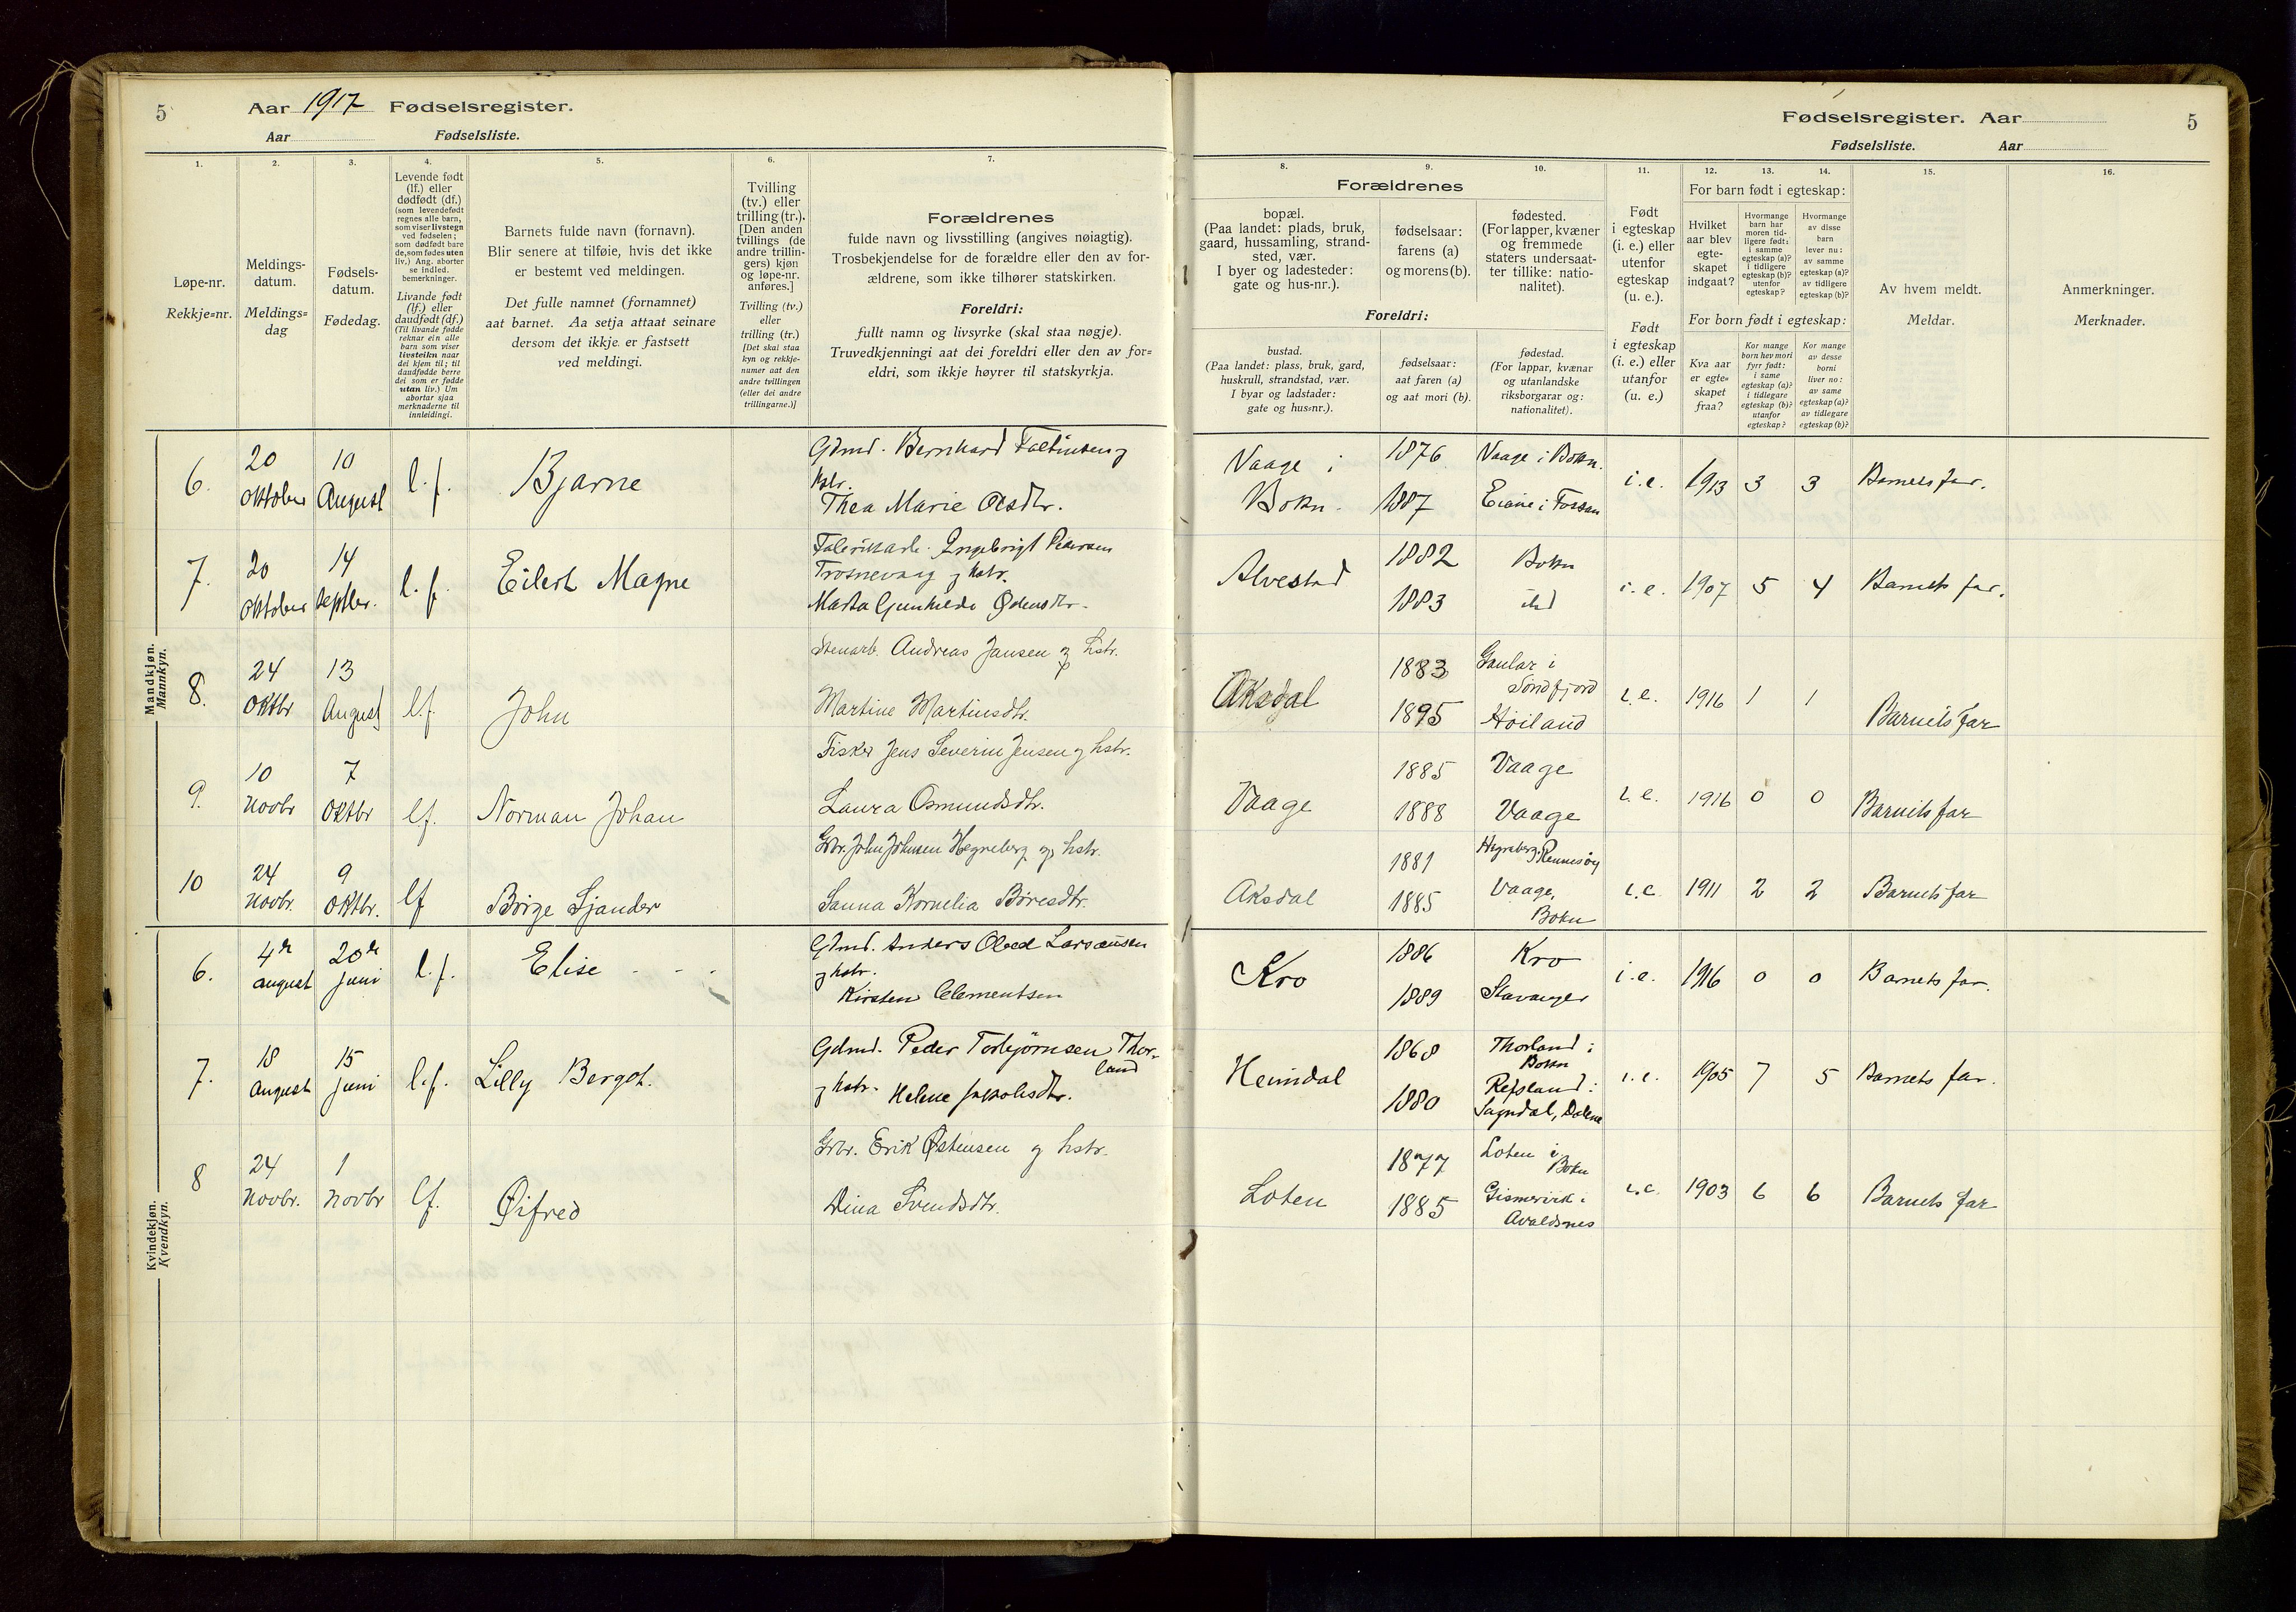 5 Aar 1917 Fødselsregister.
Aar Fødselsliste.
1. 2. 3. 4. 5. 6. 7.
Løpe-nr.
Rekkje=nr.
Meldings-
datum.
Meldings=
dag
Fødsels-
datum.
Fødedag.
Levende født
(lf.) eller
dødfødt (df.)
(som levendefødt
regnes alle barn,
som viser livstegn
ved fødselen;
som dødfødt bare
de, som fødes uten
liv.) Ang. aborter
se indled.
bemerkninger.
Livande født
(lf.) eller
daudfødt (df.)
(Til livande fødde
reknar ein alle
barn som viser
livsteikn naar
dei kjem til; til
daudfødde berre
dei som er fødde
utan liv.) Um
abortar sjaa
merknaderne til
innleidingi.
Barnets fulde navn (fornavn).
Blir senere at tilføie, hvis det ikke
er bestemt ved meldingen.
Det fulle namnet (fornamnet)
aat barnet. Aa setja attaat seinare
dersom det ikkje er fastsett
ved meldingi.
Tvilling
(tv.) eller
trilling (tr.).
[Den anden
tvillings (de
andre trillin-
gers) kjøn
og løpe-nr.
anføres.]
Tvilling (tv.)
eller
trilling (tr.)
[Det skal staa
kyn og rekkje-
numer aat den
andre tvillingen
(eller dei andre
trillingarne.)]
Forældrenes
fulde navn og livsstilling (angives nøiagtig).
Trosbekjendelse for de forældre eller den av for-
ældrene, som ikke tilhører statskirken.
Foreldri:
fullt namn og livsyrke (skal staa nøgje).
Truvedkjenningi aat dei foreldri eller den av for=
eldri, som ikkje høyrer til statskyrkja.
Mandkjøn.
Mannkyn.
6. 20 oktober 10 August l.f. Bjarne
Gdmd. Bernhard Faltinsen og
hstr.
Thea Marie Olsdtr.
7. 20 oktober 14 septbr. l.f. Eilert Magne
Ingebrigt Pedersen
og hstr.
Marta Gunhilde
8. 24 Oktbr 13 August lf. John
Stenarb. Andreas Jansen og hstr.
Martine Martinsdtr.
9. 10 Novbr 7 Oktbr lf. Norman Johan
Fisker Jens Severin Jensen og hstr.
Laura Osmundsdtr.
10 24 Novbr. 9 Oktbr. lf Børge Sjander
Gbr. John Johnsen Hegreberg og hstr.
Sanna Kornelia Børesdtr.
Kvindekjøn.
Kvendkyn.
6. 4de august 20de juni l.f. Elise
Gdmd. Anders Obed Larsensen
og hstr.
Kirsten Clementsen
7. 18 august 15 juni l.f. Lilly Bergot.
Gdmd. Peder Torbjørnsen Thor-
land
og hstr. Helene Jakobsdtr.
8 24 Novbr. 1 Novbr lf. Øifred
Gbr. Erik Østensen og hstr.
Dina Svendsdtr.
Fødselsregister. Aar 5
Fødselsliste. Aar
8. 9. 10. 11. 12. 13. 14. 15. 16.
Forældrenes
bopæl.
(Paa landet: plads, bruk,
gaard, hussamling, strand-
sted, vær.
I byer og ladesteder:
gate og hus-nr.).
fødselsaar:
farens (a)
og morens (b).
fødested.
(For lapper, kvæner
og fremmede
staters undersaat-
ter tillike: natio-
nalitet).
Foreldri:
bustad.
(Paa landet: plass, bruk, gard,
huskrull, strandstad, vær.
I byar og ladstader:
gate og hus=nr.).
fødselsaar:
aat faren (a)
og aat mori (b).
fødestad.
(For lappar, kvænar
og utanlandske
riksborgarar og:
nationalitet).
Født
i egteskap
(i. e.) eller
utenfor
egteskap
(u. e.).
Født
i egteskap
(i. e.) eller
utanfor
(u. e.)
For barn født i egteskap:
Hvilket
aar blev
egte-
skapet
indgaat?
Hvormange
barn har
moren tid-
ligere født:
i samme
egteskap (a)?
i tidligere
egteskap (b)?
utenfor
egteskap?
Hvormange
av disse
barn
lever nu:
av samme
egteskap (a)?
av tidligere
egteskap (b)?
For born født i egteskap:
Kva aar
er egte=
skapet
fraa?
Kor mange
born hev mori
fyrr født:
i same
egteskap (a)?
i tidlegare
egteskap (b)?
utanfor
egteskap?
Kor mange
av desse
borni
liver no:
av same
egteskap (a)?
av tidlegare
egteskap (b)?
Av hvem meldt.
Meldar.
Anmerkninger.
Merknader.
Vaage i 1876 Vaage i Bokn.
Bokn. 1887 Eiane i Fossan
i.e. 1913 3 3 Barnets far.
Alvestad 1882 Bokn
1883 ibd
i.e. 1907 5 4 Barnets far.
Aksdal 1883 Gaular i
Søndfjord
1895 Høiland
i.e. 1916 1 1 Barnets far
Vaage 1885 Vaage
1888 Vaage
i.e. 1916 0 0 Barnets far
Aksdal 1881 Hegreberg, Rennesøy
1885 Vaage,
Bokn
i.e. 1911 2 2 Barnets far
Kro 1886 Kro
1889 Stavanger
i.e. 1916 0 0 Barnets far.
Heimdal 1868 Thorland i
Bokn
1880 Refsland i
Sogndal, Dalene
i.e. 1905 7 5 Barnets far.
Loten 1877 Loten i
Bokn
1885 Gismervik i
Avaldsnes
i.e. 1903 6 6 Barnets far